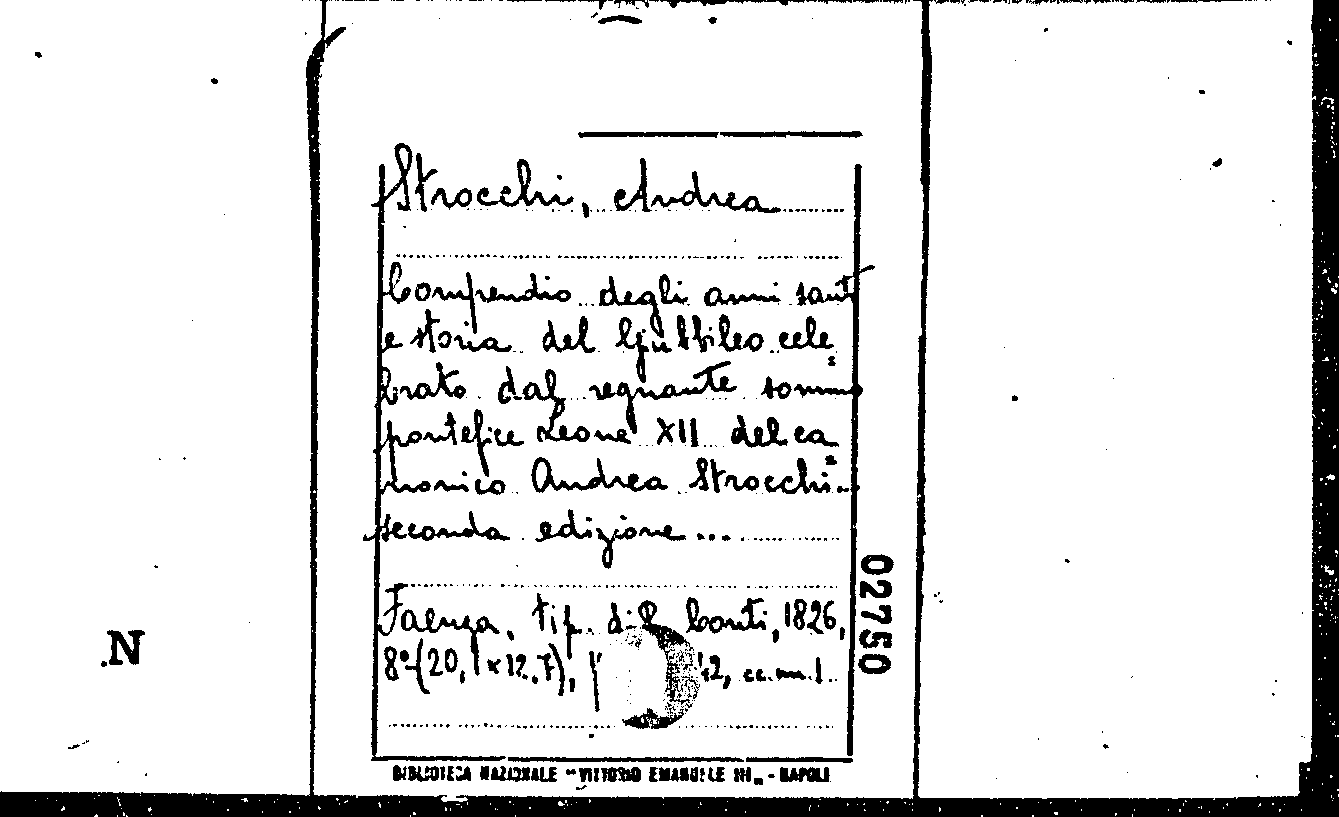 Strocchi, Andrea
Compendio degli anni santi
e storia del Giubbileo cele=
brato dal regnante sommo
pontefice Leone XII del ca=
nonico Andrea Strocchi...
seconda edizione...
Faenza, tip. di P. Conti, 1826,
8°(20,1x12,7), 42, cc.nn.1.
02750
.N
BIBLIOTECA NAZIONALE "VITTORIO EMANUELE III„ - NAPOLI